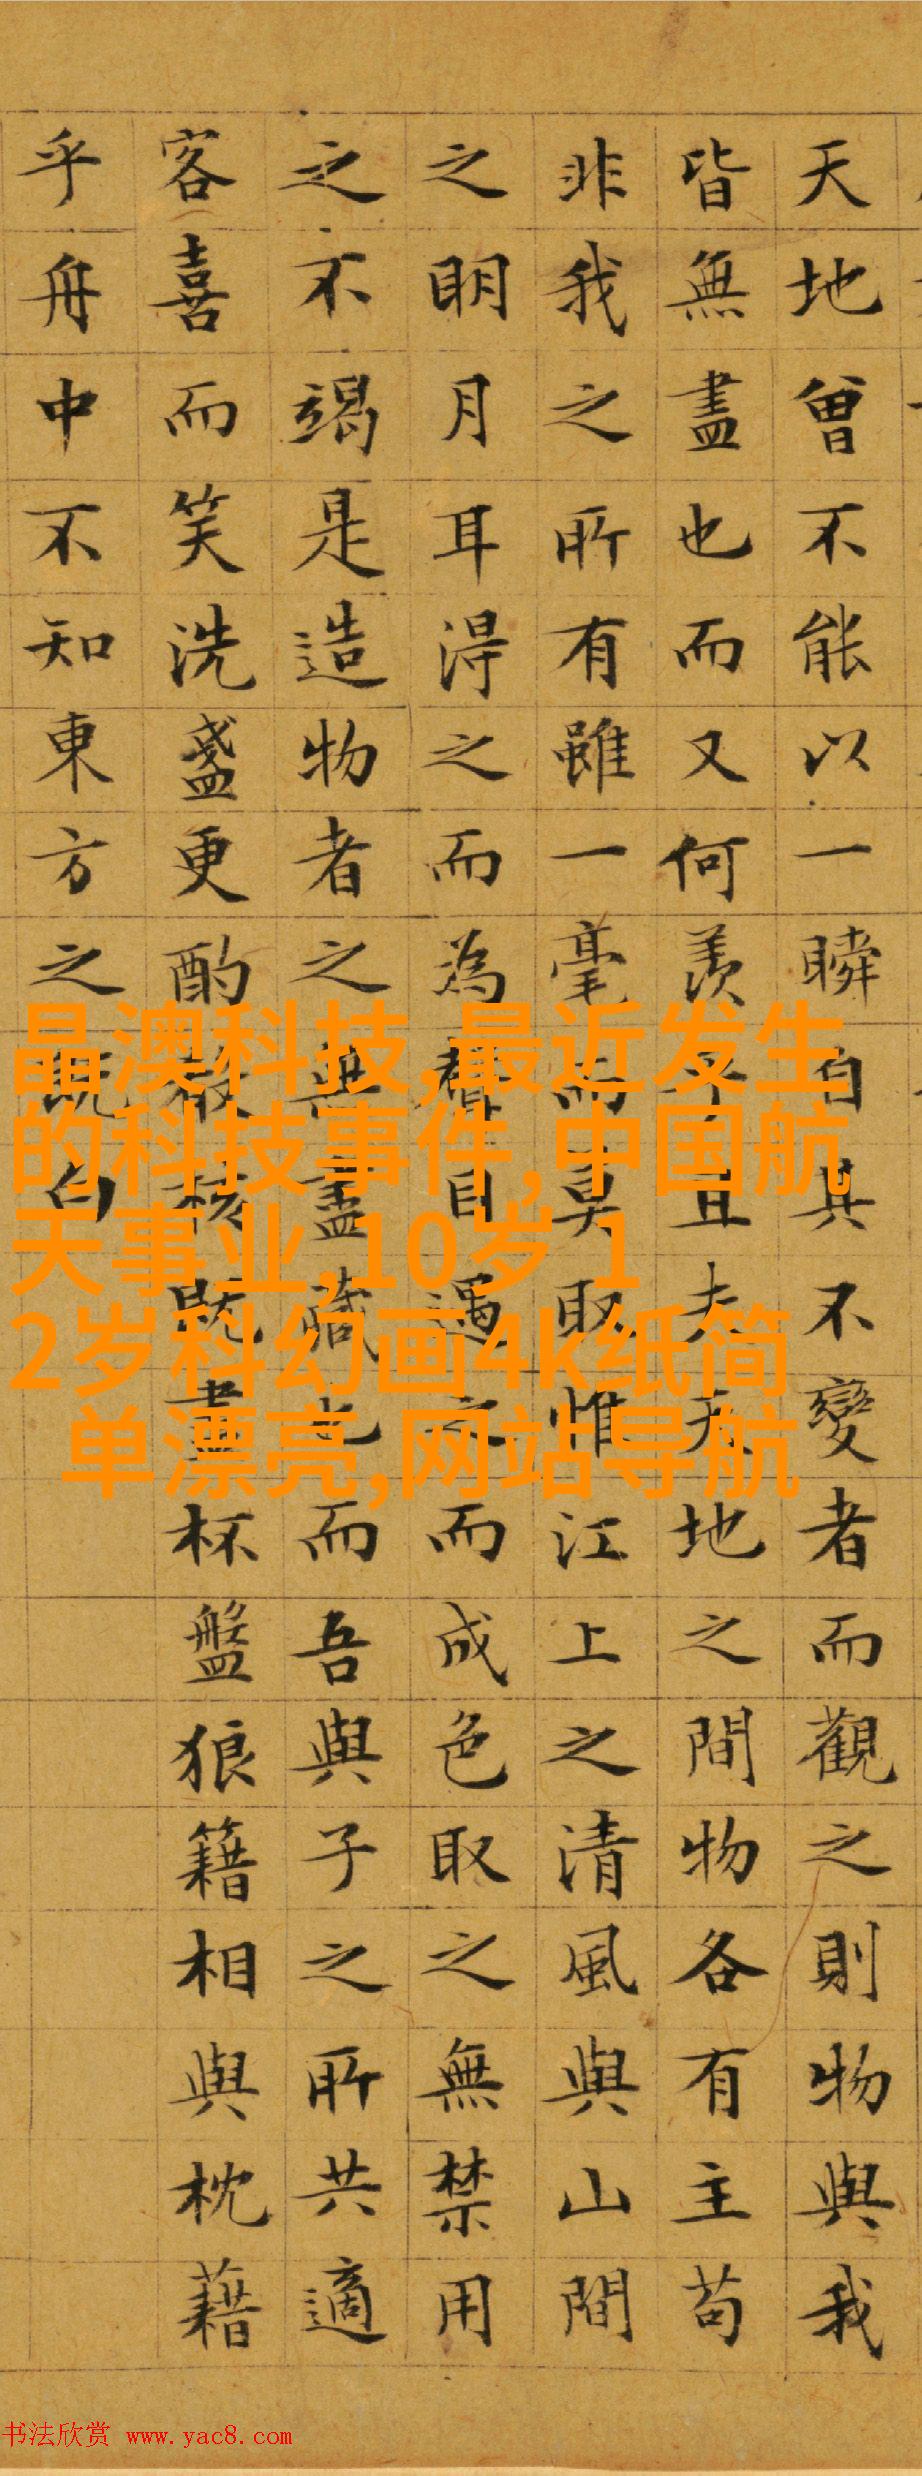 天地曾不能以一瞬自其不變者而觀之則物與我
皆無盡也而又何羨乎且夫天地之間物各有主苟
非我之所有雖一毫而莫取惟江上之清風與山間
之明月耳得之而為聲目遇之而成色取之無禁用
之不竭是造物者之無盡藏也而吾與子之所共適
客喜而笑洗盞更酌殽核既盡杯盤狼籍相與枕藉
乎舟中不知東方之既白
晶澳科技,最近发生
的科技事件,中国航
天事业,10岁-1
2岁科幻画4k纸简
单漂亮,网站导航
书法欣赏 www.yac8.com